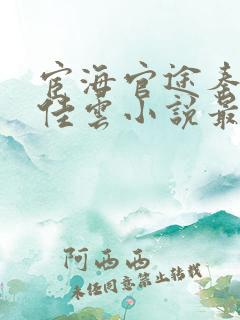 宦海官途秦
佳雲小說最
阿西西
未经同意禁止转载